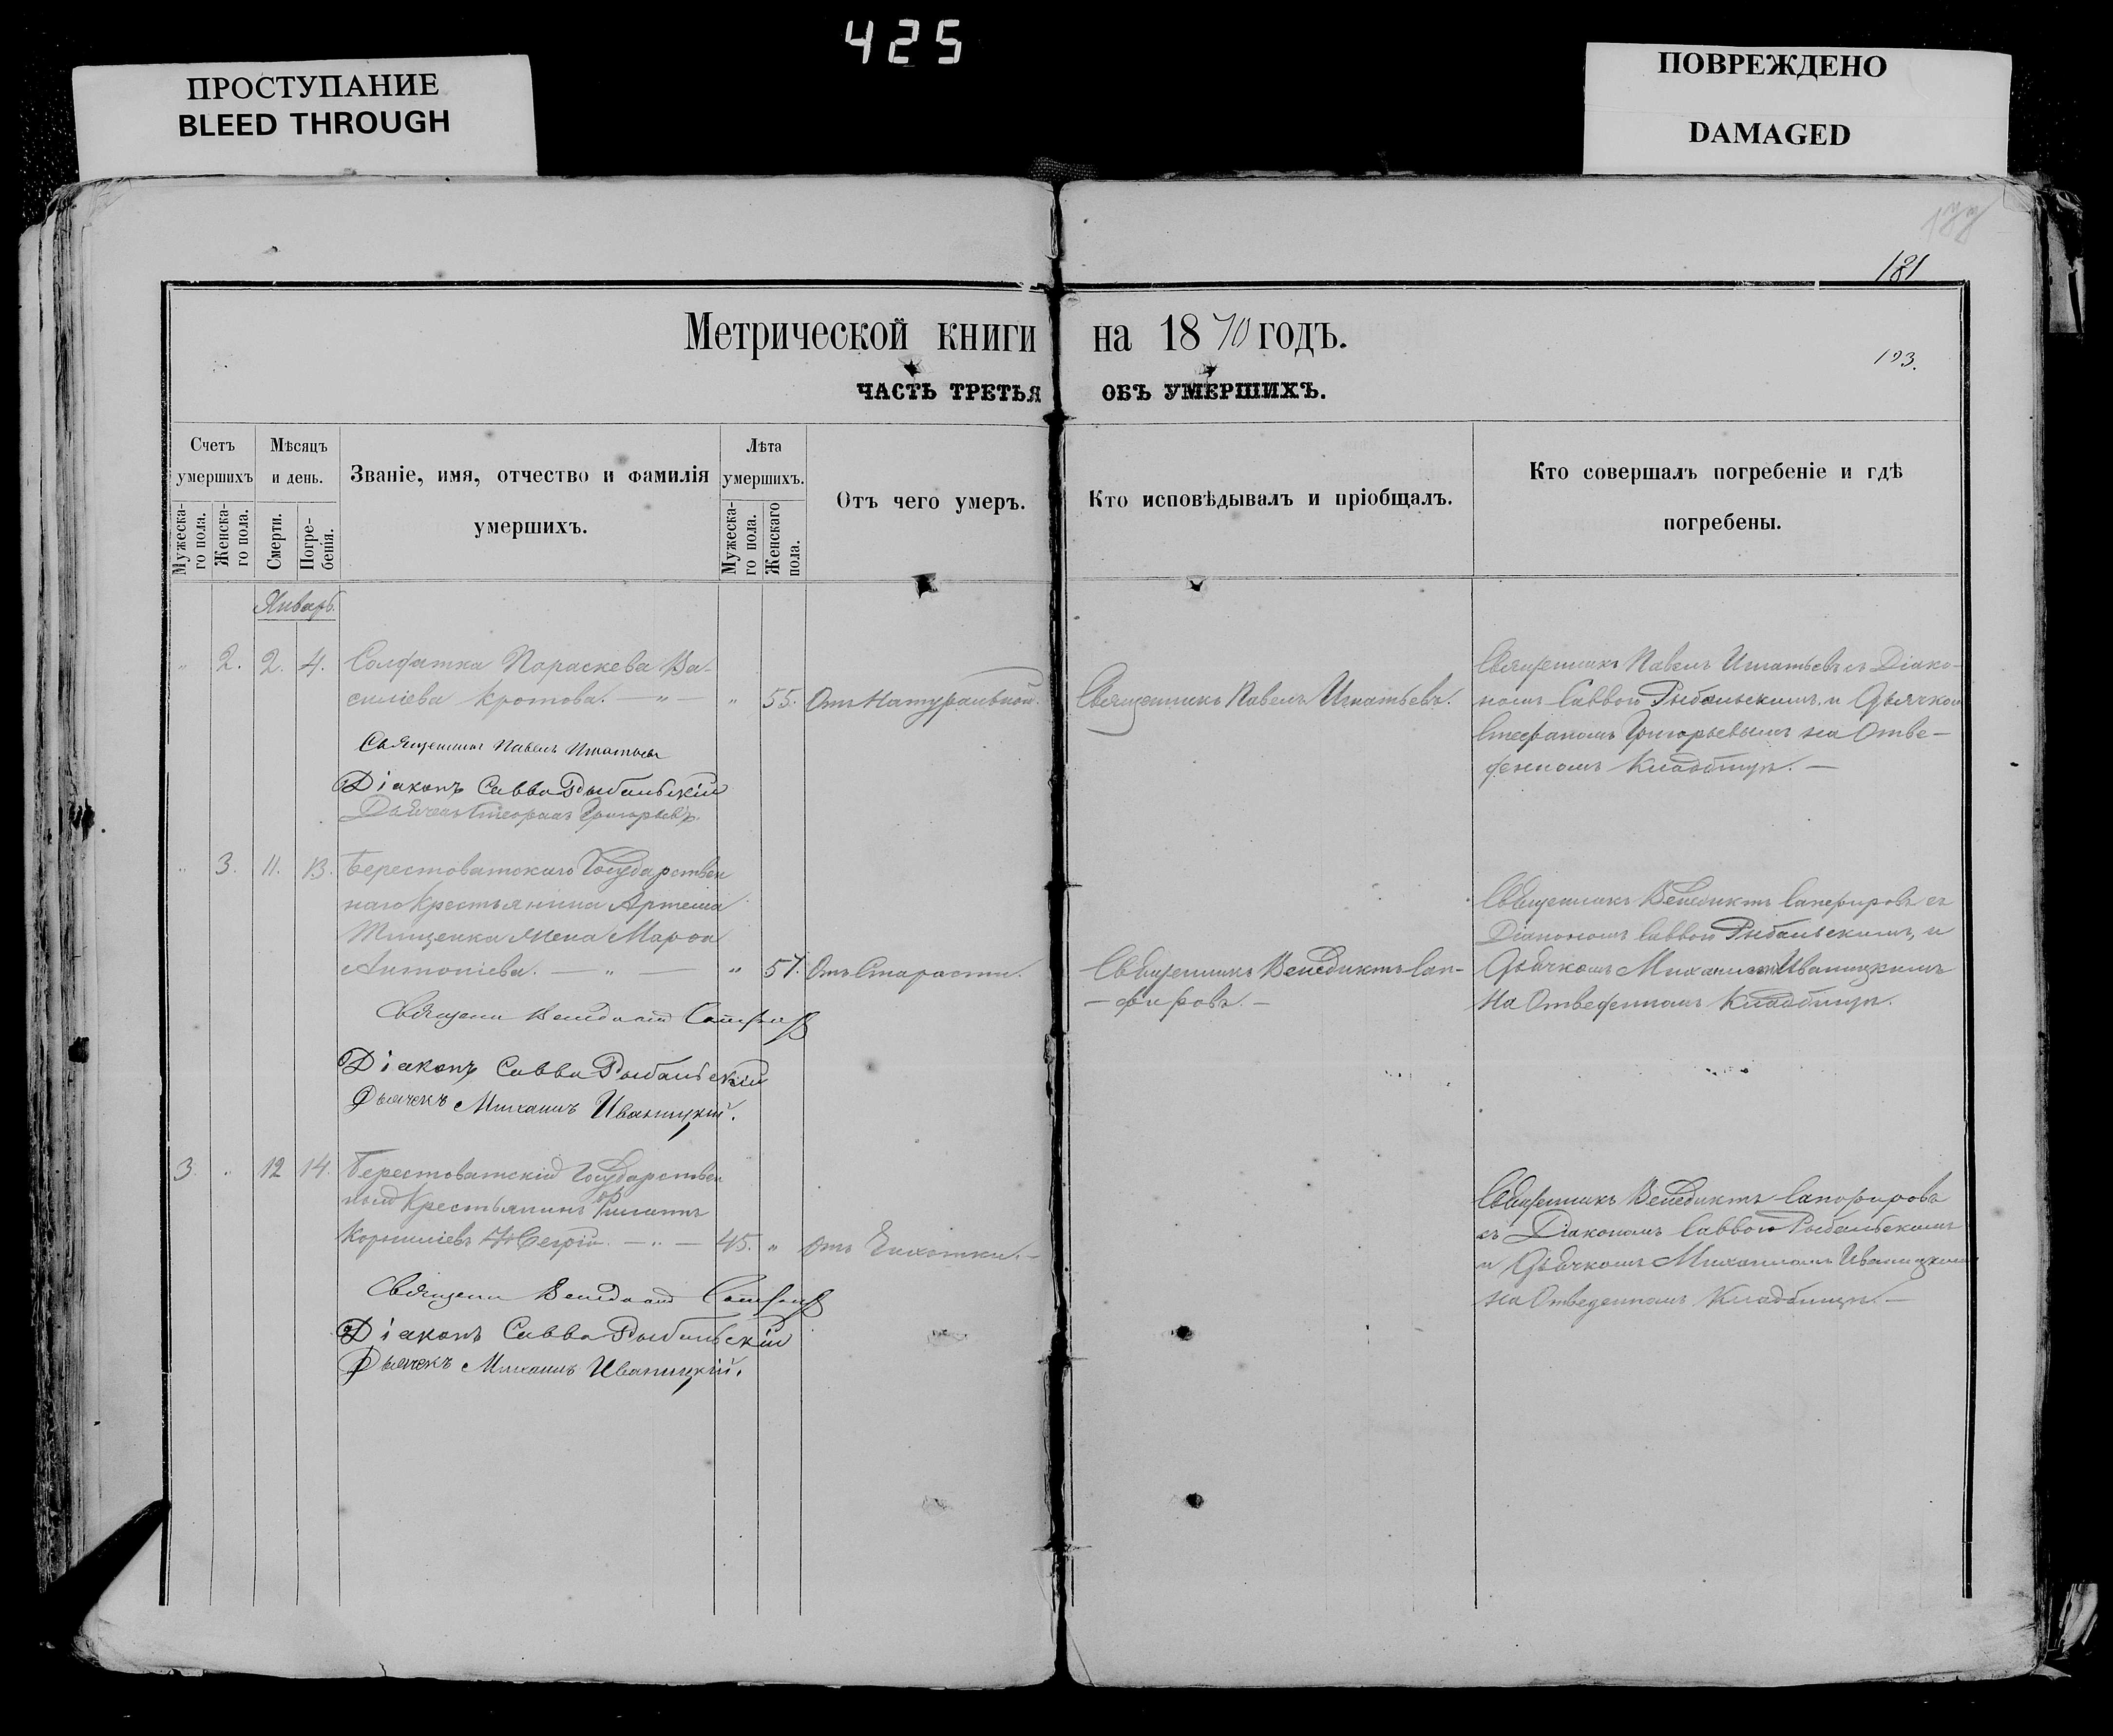 425
ПРОСТУПАНИЕ
BLEED THROUGH
ПОВРЕЖДЕНО
DAMAGED
181
Метрической книги на 1870 годъ.
193.
ЧАСТЬ ТРЕТЬЯ ОБЪ УМЕРШИХЪ.
Счетъ умершихъ
Мужеска-го пола.
Женска-го пола.
Мѣсяцъ и день.
Смерти.
Погре-бенія.
Званіе, имя, отчество и фамилія
умершихъ.
Лѣта умершихъ.
Мужеска-го пола.
Женскаго пола.
Отъ чего умеръ.
Кто исповѣдывалъ и пріобщалъ.
Кто совершалъ погребеніе и гдѣ
погребены.
Январь.
„ 2. 2. 4. Солдатка Параскева Ва-
силіева Кротова. — „ — „ 55. Отъ Натуральной. Священникъ Павелъ Игнатьевъ.
Священникъ Павелъ Игнатьевъ съ Діако-
номъ Саввою Рыбальскимъ и Дьячком
Стефаномъ Григорьевымъ на Отве-
денномъ Кладбищѣ. —
Священникъ Павелъ Игнатьевъ
Діаконъ Савва Рыбальскій
Дьячекъ Стефанъ Григорьевъ.
„ 3. 11. 13. Берестоватскаго Государствен
наго Крестьянина Артема
Тищенка жена Марѳа
Антоніева. — „ — „ 57. Отъ Старости. Священникъ Венедиктъ Сап-
— фировъ. —
Священникъ Венедиктъ Сапфировъ съ
Діакономъ Саввою Рыбальскимъ, и
Дьячкомъ Михаиломъ Иваницкимъ
на Отведенномъ Кладбищѣ.
Священни Венедиктъ
Діаконъ Савва Рыбальскій
Дьячекъ Михаилъ Иваницкій.
3. „ 12 14. Берестоватскій Государствен
ный Крестьянинъ Филиппъ
Корниліевъ — „ — 45. „ отъ Чахотки. —
Священникъ Венедиктъ Сапфировъ
съ Діакономъ Саввою Рыбальскимъ
и Дьячкомъ Михаиломъ Иваницким
на Отведенномъ Кладбищѣ. —
Священни Венедиктъ
Діаконъ Савва Рыбальскій
Дьячекъ Михаилъ Иваницкій.